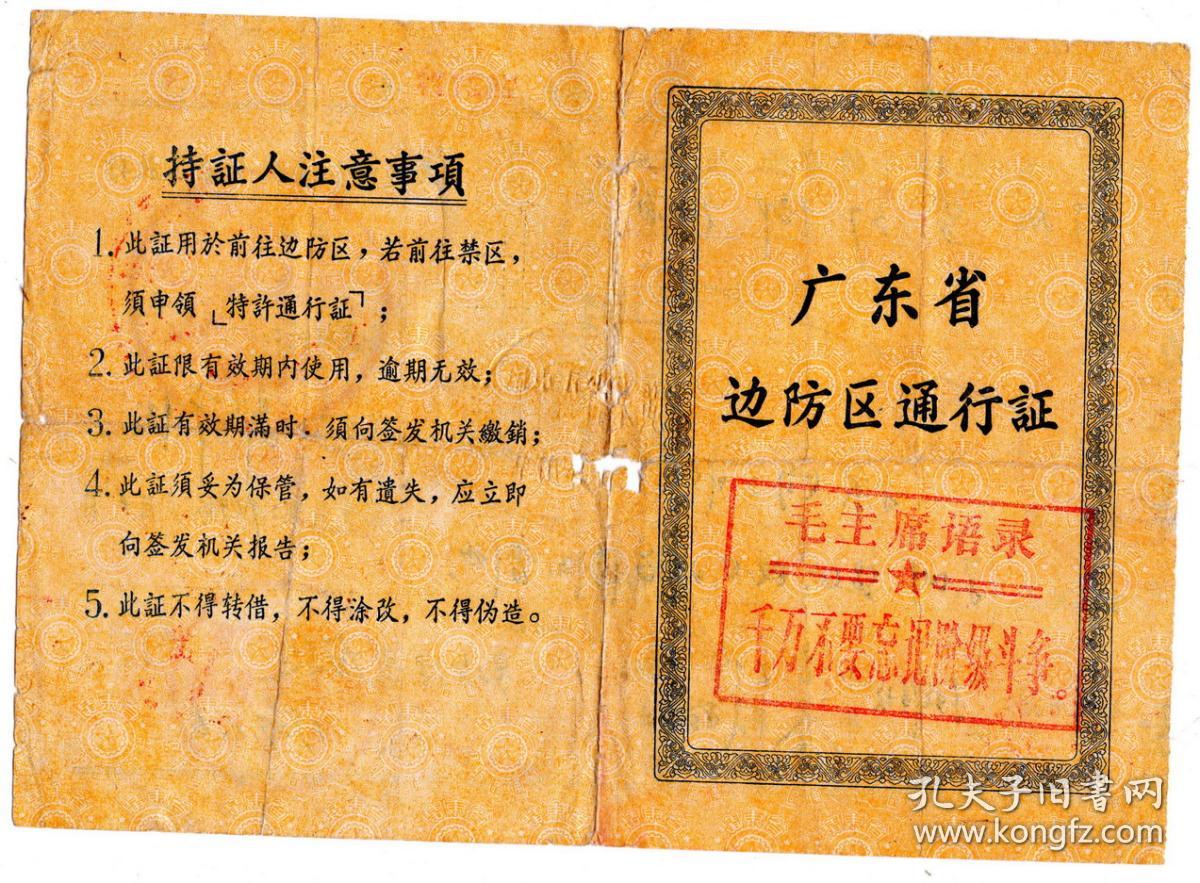 持証人注意事項
1. 此証用於前往边防区，若前往禁区，
須申領「特許通行証」；
2. 此証限有效期内使用，逾期无效；
3. 此証有效期滿时．須向签发机关繳銷；
4. 此証須妥为保管，如有遺失，应立即
向签发机关报告；
5. 此証不得转借，不得涂改，不得伪造。
广东省
边防区通行証
毛主席语录
千万不要忘记阶级斗争。
孔夫子旧书网
www.kongfz.com